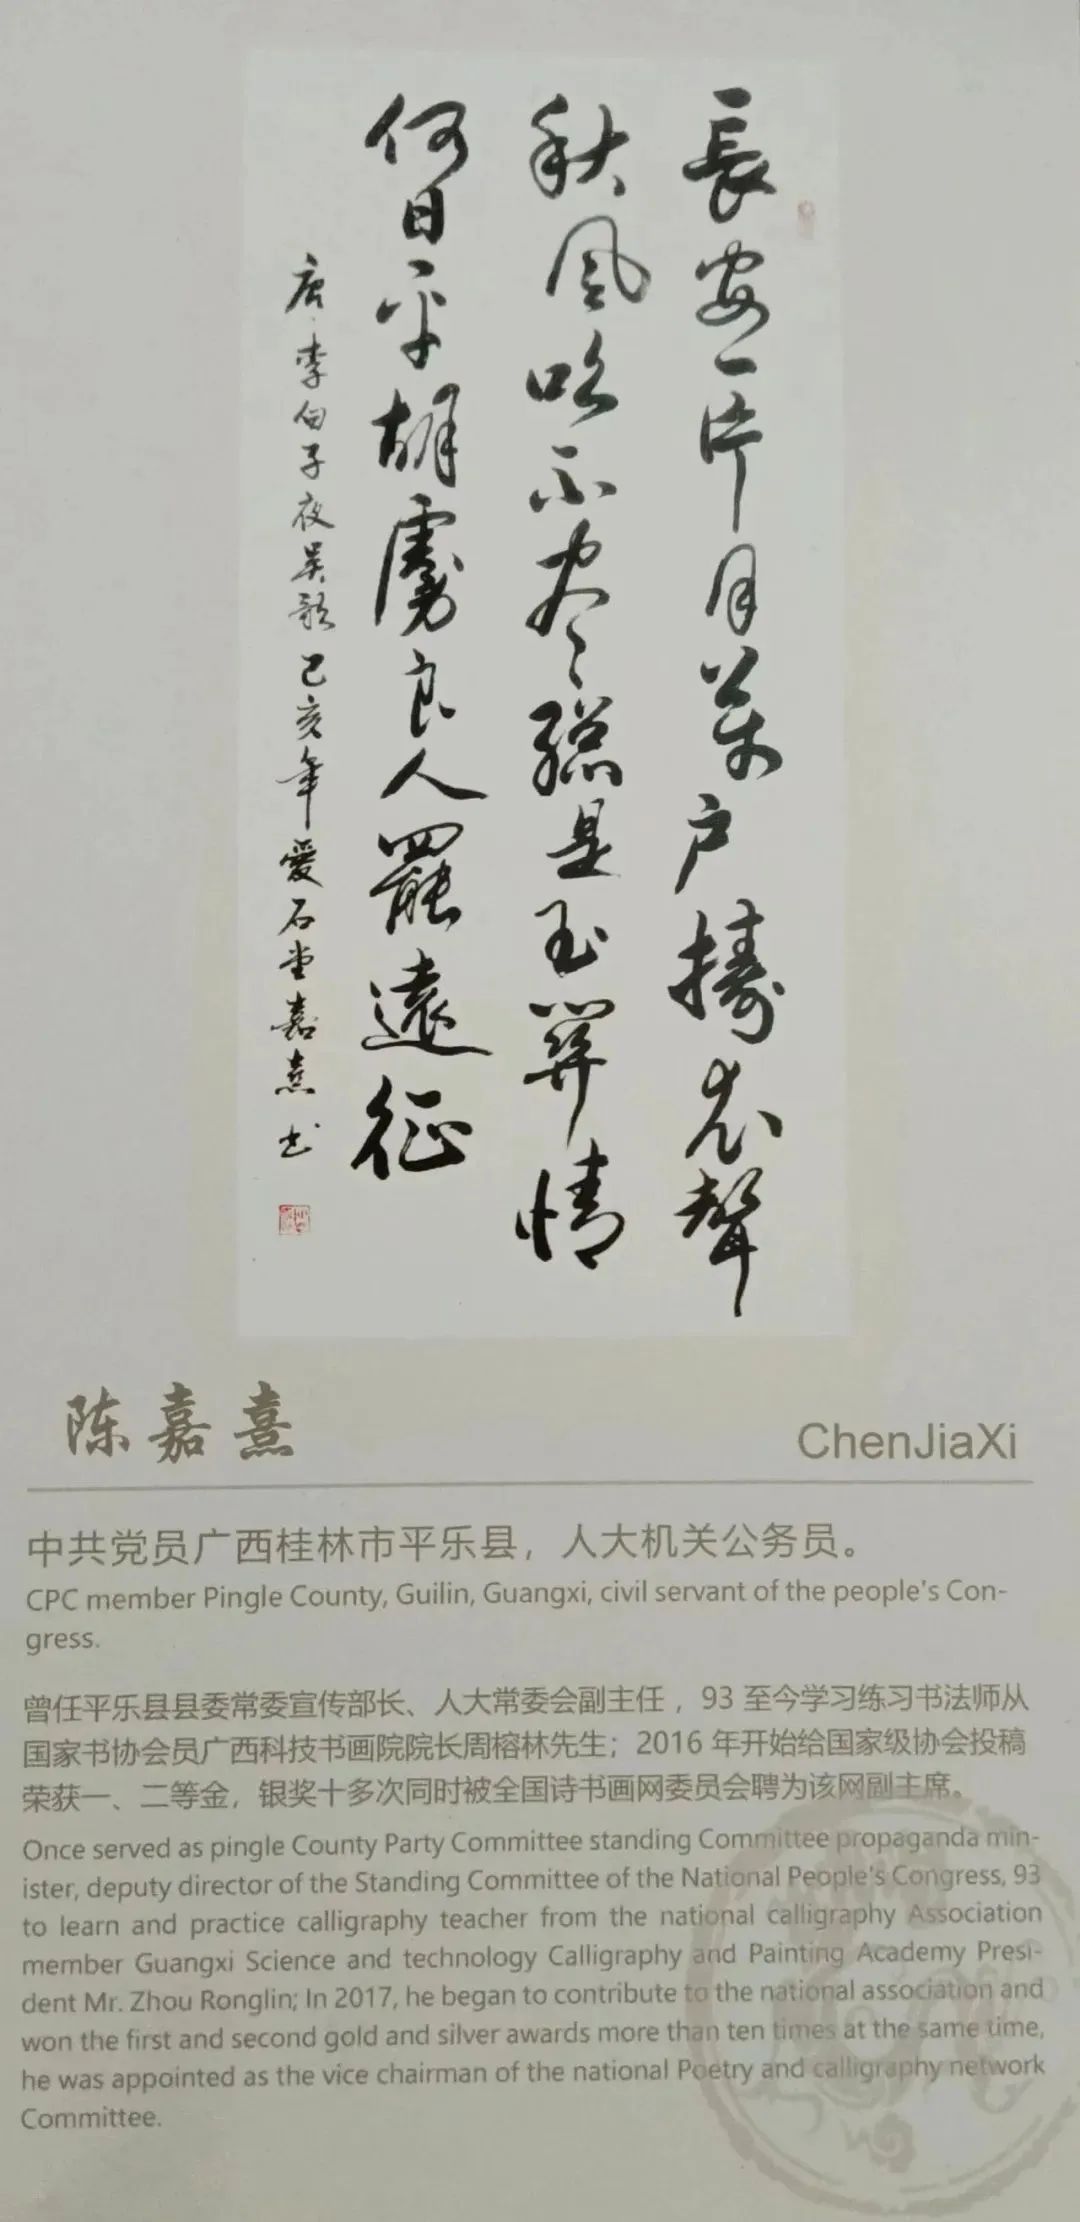 長安一片月萬户擣衣聲
秋風吹不尽總是玉關情
何日平胡虜良人罷遠征
唐·李白子夜吴歌己亥年愛石堂嘉熹书
陈嘉熹
ChenJiaXi
中共党员广西桂林市平乐县，人大机关公务员。
CPC member Pingle County, Guilin, Guangxi, civil servant of the people's Con-
gress.
曾任平乐县县委常委宣传部长、人大常委会副主任，93 至今学习练习书法师从
国家书协会员广西科技书画院院长周榕林先生；2016 年开始给国家级协会投稿
荣获一、二等金，银奖十多次同时被全国诗书画网委员会聘为该网副主席。
Once served as pingle County Party Committee standing Committee propaganda min-
ister, deputy director of the Standing Committee of the National People's Congress, 93
to learn and practice calligraphy teacher from the national calligraphy Association
member Guangxi Science and technology Calligraphy and Painting Academy Presi-
dent Mr. Zhou Ronglin; In 2017, he began to contribute to the national association and
won the first and second gold and silver awards more than ten times at the same time,
he was appointed as the vice chairman of the national Poetry and calligraphy network
Committee.